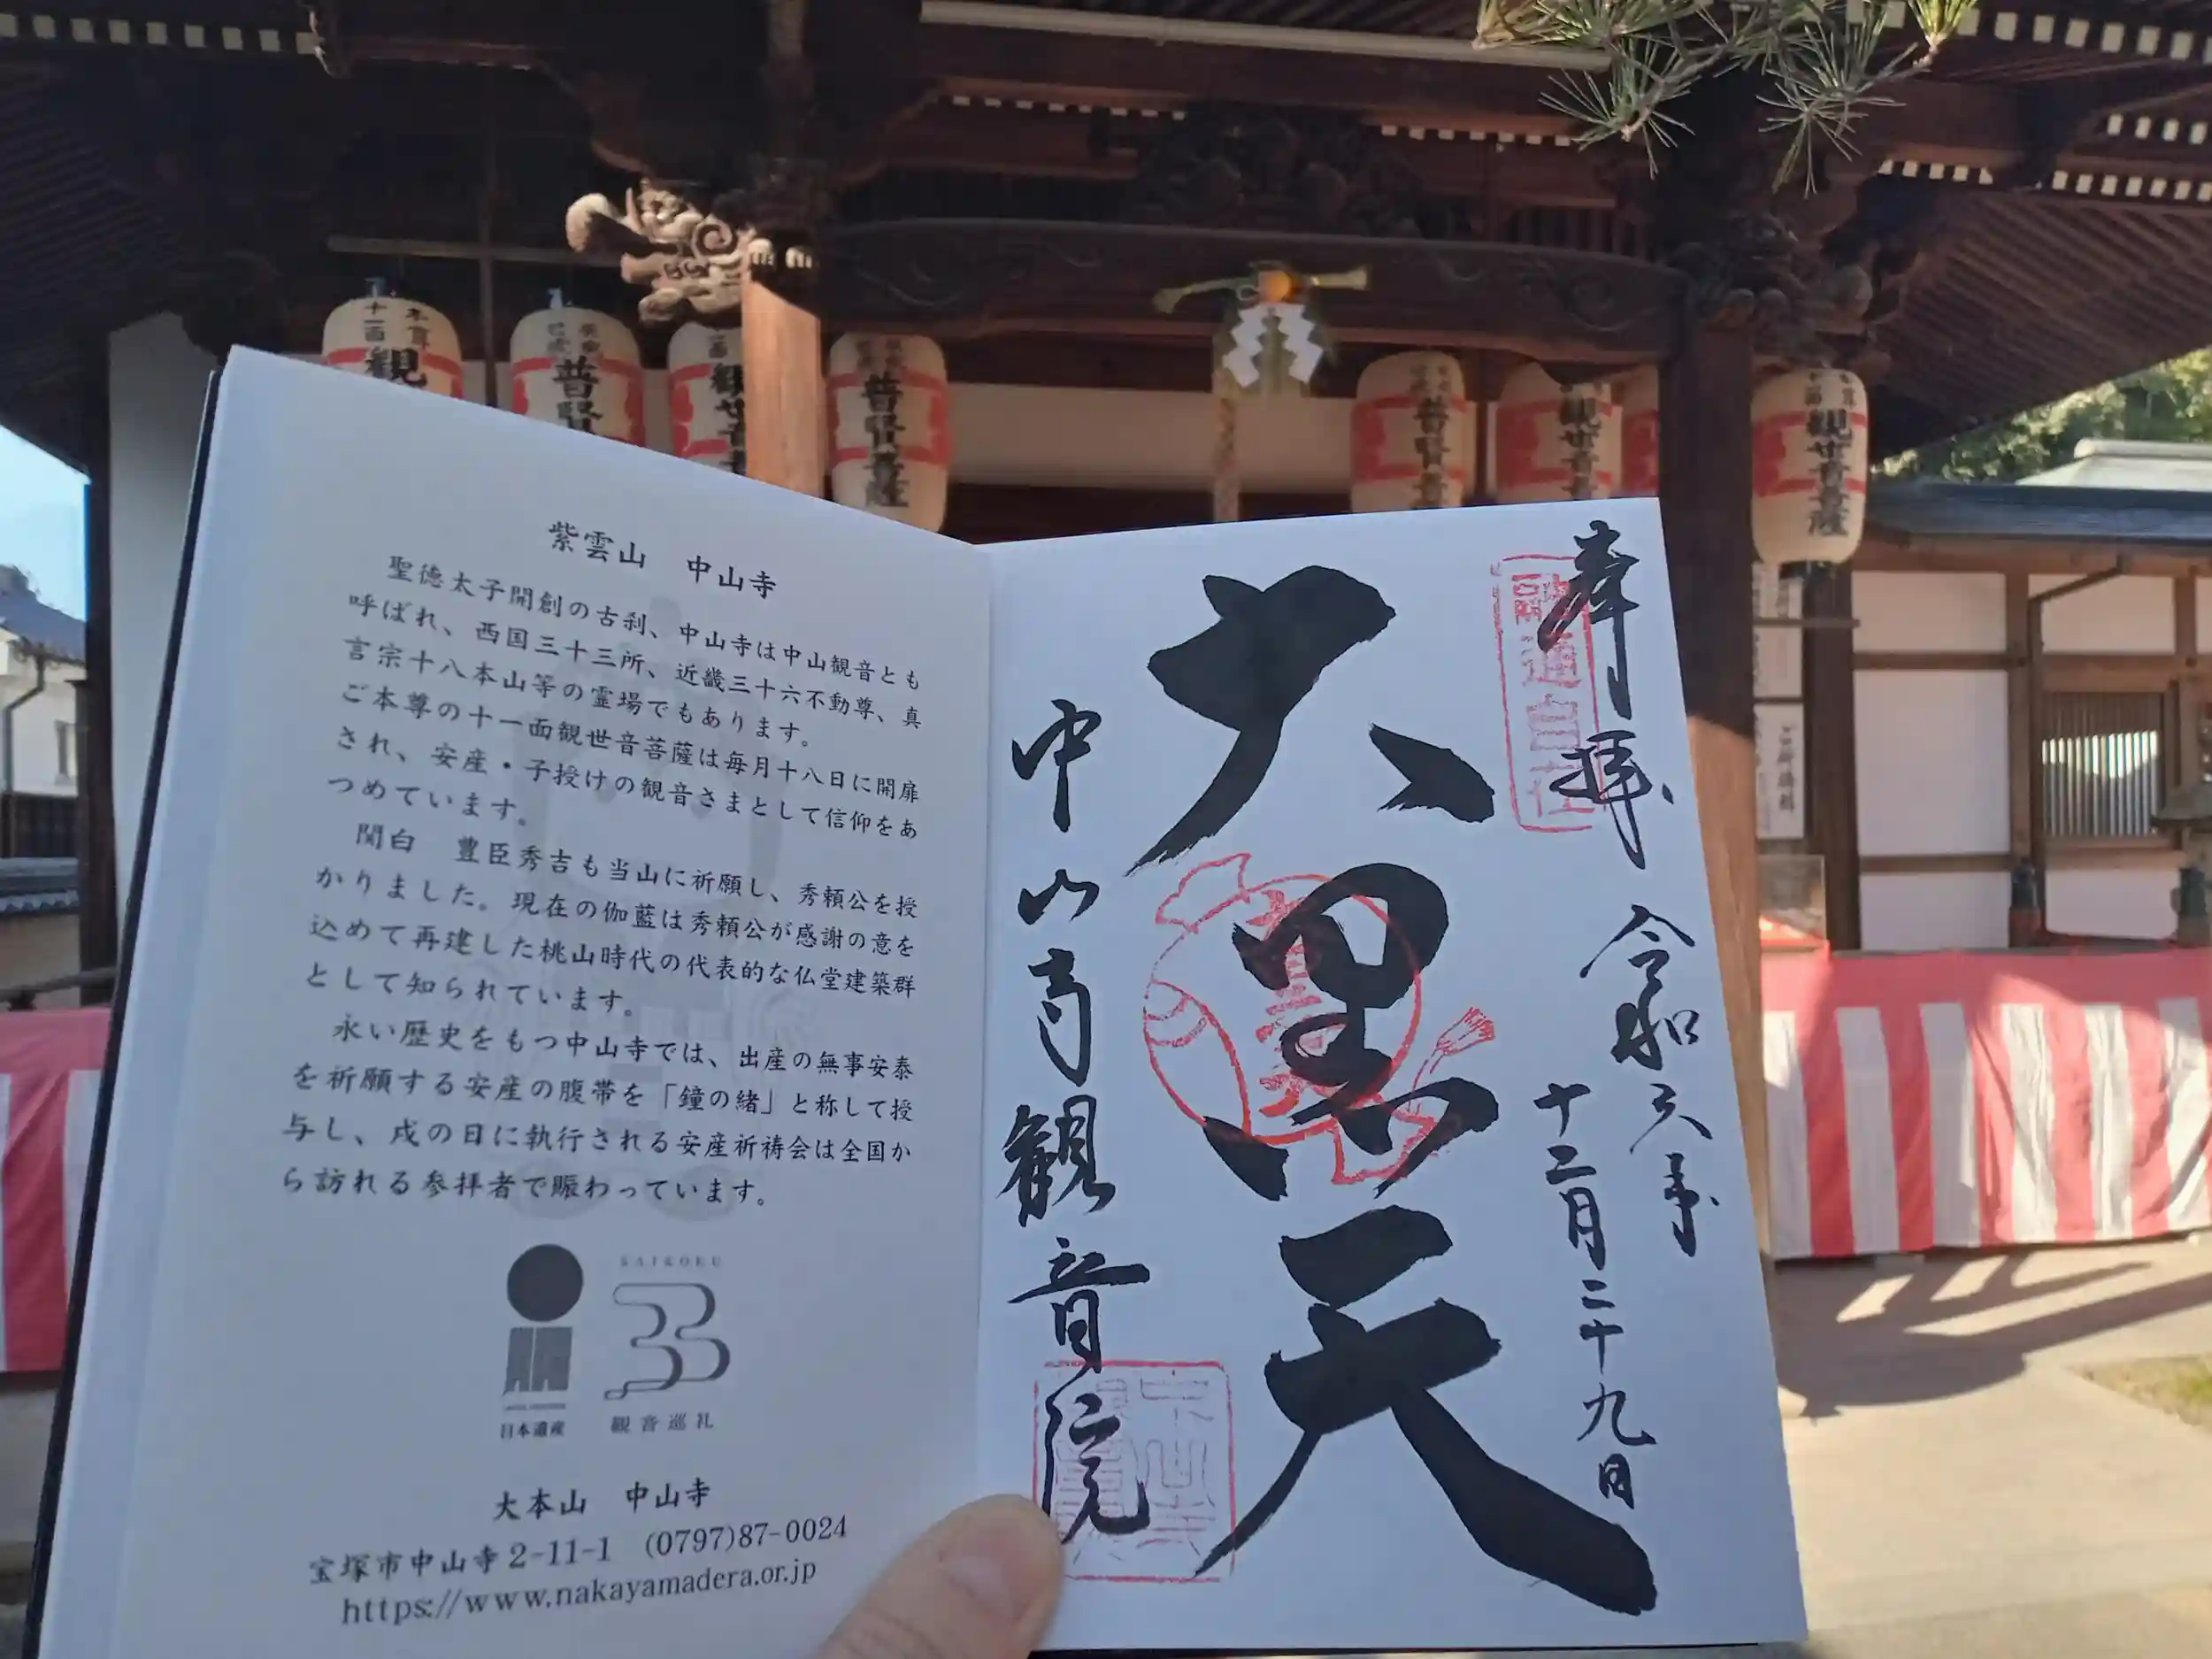 紫雲山 中山寺
聖徳太子開創の古刹、中山寺は中山観音とも
呼ばれ、西国三十三所、近畿三十六不動尊、真
言宗十八本山等の霊場でもあります。
ご本尊の十一面観世音菩薩は毎月十八日に開扉
され、安産・子授けの観音さまとして信仰をあ
つめています。
関白 豊臣秀吉も当山に祈願し、秀頼公を授
かりました。現在の伽藍は秀頼公が感謝の意を
込めて再建した桃山時代の代表的な仏堂建築群
として知られています。
永い歴史をもつ中山寺では、出産の無事安泰
を祈願する安産の腹帯を「鐘の緒」と称して授
与し、戌の日に執行される安産祈祷会は全国か
ら訪れる参拝者で賑わっています。
日本遺産
SAIKOKU
33
観音巡礼
大本山 中山寺
宝塚市中山寺2-11-1 (0797)87-0024
https://www.nakayamadera.or.jp
奉拝
令和六年
十二月二十九日
大黒天
中山寺観音院
本尊
十一面
観
普賢
観世音
普賢菩薩
普賢
観世音
観世音菩薩